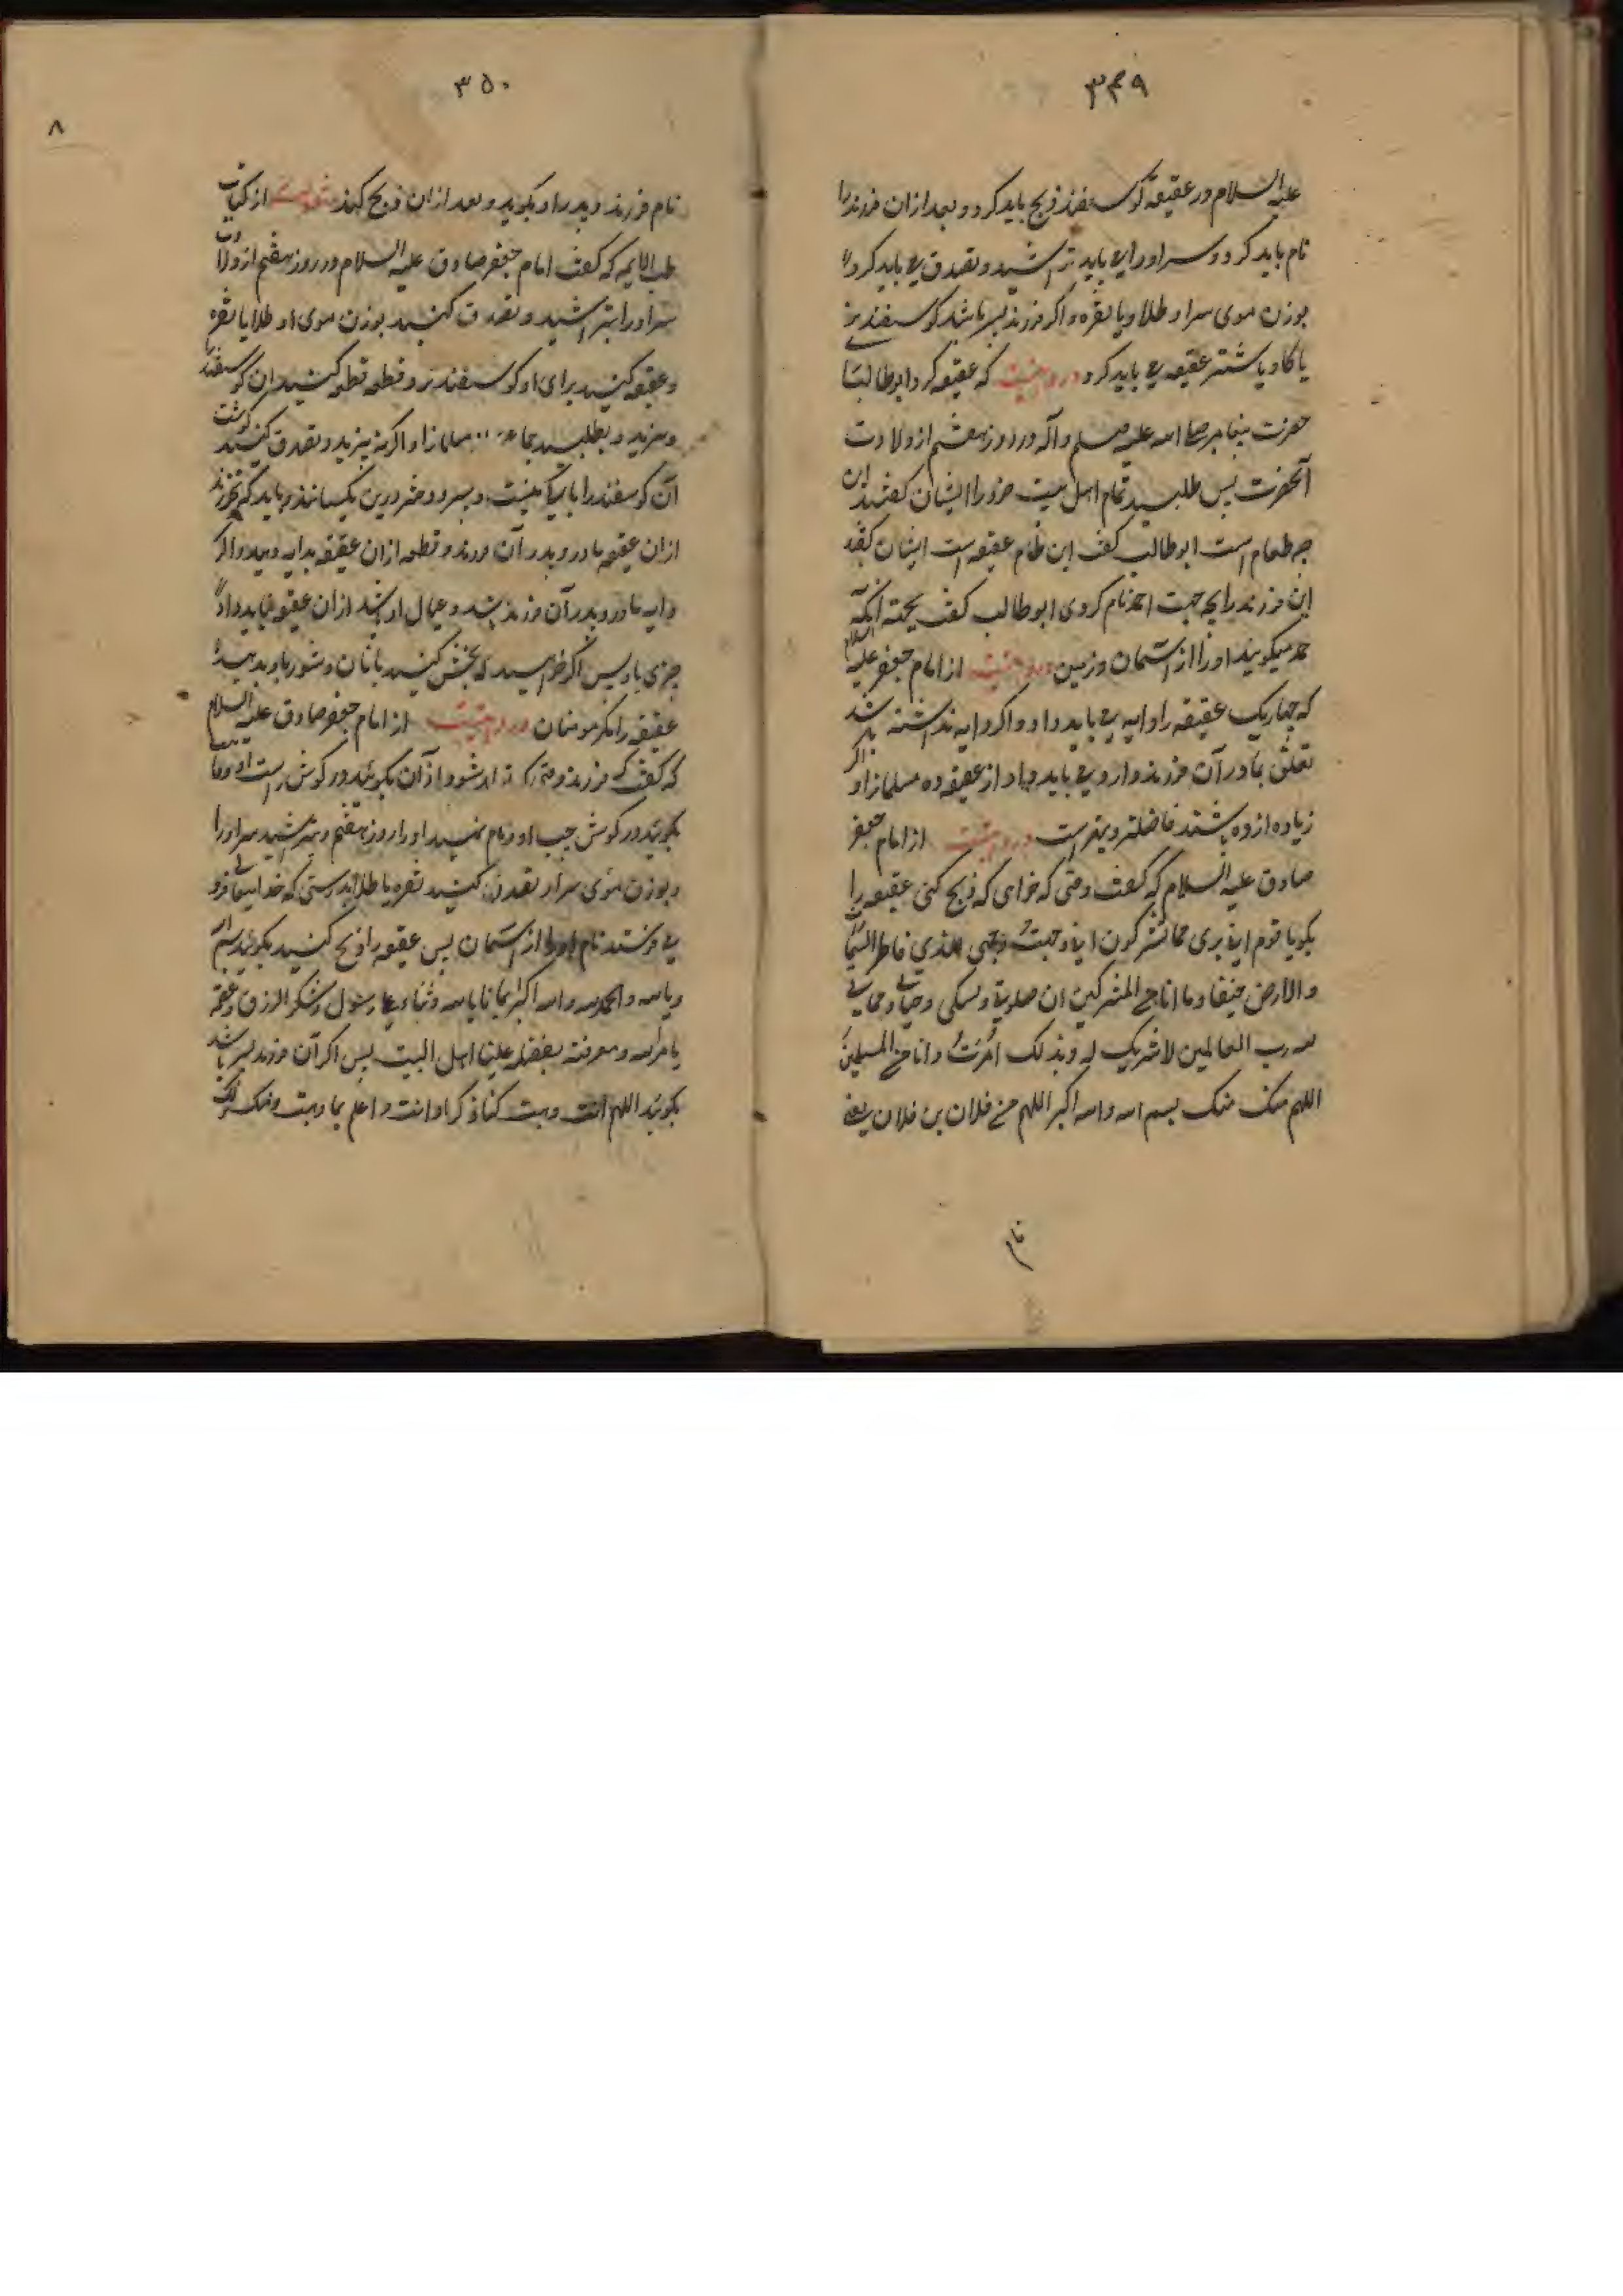 ۳۴۹
علیه السلام در عقیقه گوسفند ذبح باید کرد و بعد ازان فرزند را
نام باید کرد و سر او را می باید تراشید و تصدق می باید کرد
بوزن موی سر او طلا و یا نقره و اگر فرزند پسر باشد گوسفند نر
یا گاو یا شتر عقیقه می باید کرد در روایتست که عقیقه کرد ابوطالب
حضرت پیغامبر صلی الله علیه و سلم و آله در روز هفتم از ولادت
آنحضرت پس طلبید تمام اهل بیت خود را ایشان گفتند این
چه طعام است ابوطالب گفت این طعام عقیقه است ایشان گفتند
این فرزند را بچه جهت احمد نام کردی ابوطالب گفت بجهة آنکه
حمد میگویند او را از آسمان و زمین در روایتست از امام جعفر علیه السلام
که چهاریک عقیقه را دایه می باید داد و اگر دایه نداشته باشد
تعلق بمادر آن فرزند دارد می باید داد و از عقیقه ده مسلمانرا و اگر
زیاده از ده باشند فاضلتر و بهتر است در روایتست از امام جعفر
صادق علیه السلام که گفت وقتی که خواهی که ذبح کنی عقیقه را
بگو یا قوم انی بری مما تشرکون انی وجهت وجهی للذی فاطر السموات
والارض حنیفا و ما انا من المشرکین ان صلوتی و نسکی و محیای و مماتی
لله رب العالمین لا شریک له و بذلک امرت و انا من المسلمین
اللهم منک منک بسم الله و الله اکبر اللهم من فلان بن فلان یعنی
نام
۳۵۰
۸
نام فرزند و پدر را و بگوید و بعد ازان ذبح کند از کتاب
طب الایمه که گفت امام جعفر صادق علیه السلام در روز هفتم از ولادت
سر او را بتراشید و تصدق کنید بوزن موی او طلا یا نقره
و عقیقه کنید برای او گوسفند نر و قطعه قطعه کنید ان گوسفند
و بپزید و بطلبید جماعه مسلمانرا و اگر نه پزید و تصدق کنید گوشت
آن گوسفند را باکی نیست و پسر و دختر درین یکسانند و باید که نخورند
ازان عقیقه مادر و پدر آن فرزند و قطعه ازان عقیقه بدایه دهید و اگر
دایه مادر و پدر آن فرزند باشد و عیال او باشد ازان عقیقه نباید داد
چیزی باو پس اگر خواهید که بخش کنید با نان و شوربا و بدهید
عقیقه را مگر مومنان در روایتست از امام جعفر صادق علیه السلام
که گفت که فرزند وقتی که تولد شود اذان بگویند در گوش راست او و اقامت
بگویند در گوش چپ او و نام نهید او را روز هفتم و بتراشید سر او را
و بوزن موی سر او تصدق کنید نقره یا طلا بدرستی که خدایتعالی فرو
می فرستد نام او را از آسمان پس عقیقه را ذبح کنید بگویید بسم الله
و بالله و الحمد لله و الله اکبر ایمانا بالله و ثناء علی رسول و شکر الرزق و عصمة
بامرالله و معرفته بفضله علینا اهل البیت پس اگر آن فرزند پسر باشد
بگویید اللهم انت وهبت لنا ذکرا و انت اعلم بما وهبت و منک